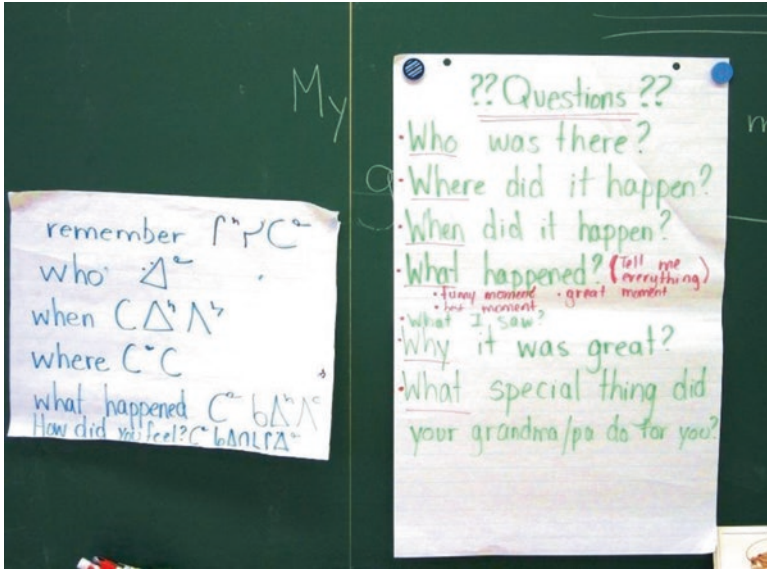 My
remember ᒋᐢᓯᑕᐣ
who ᐐᐣ
when ᑕᐃᐢᐱᕀ
where ᑕᐤᑕ
what happened ᑕᐣ ᑲᐃᐢᐱᐟ
How did you feel? ᑕᐣ ᑲᐃᑎᒪᒋᐃᐣ
?? Questions ??
• Who was there?
• Where did it happen?
• When did it happen?
• What happened? (Tell me everything)
• funny moment • great moment
• moment
• What I saw?
• Why it was great?
• What special thing did
your grandma/pa do for you?